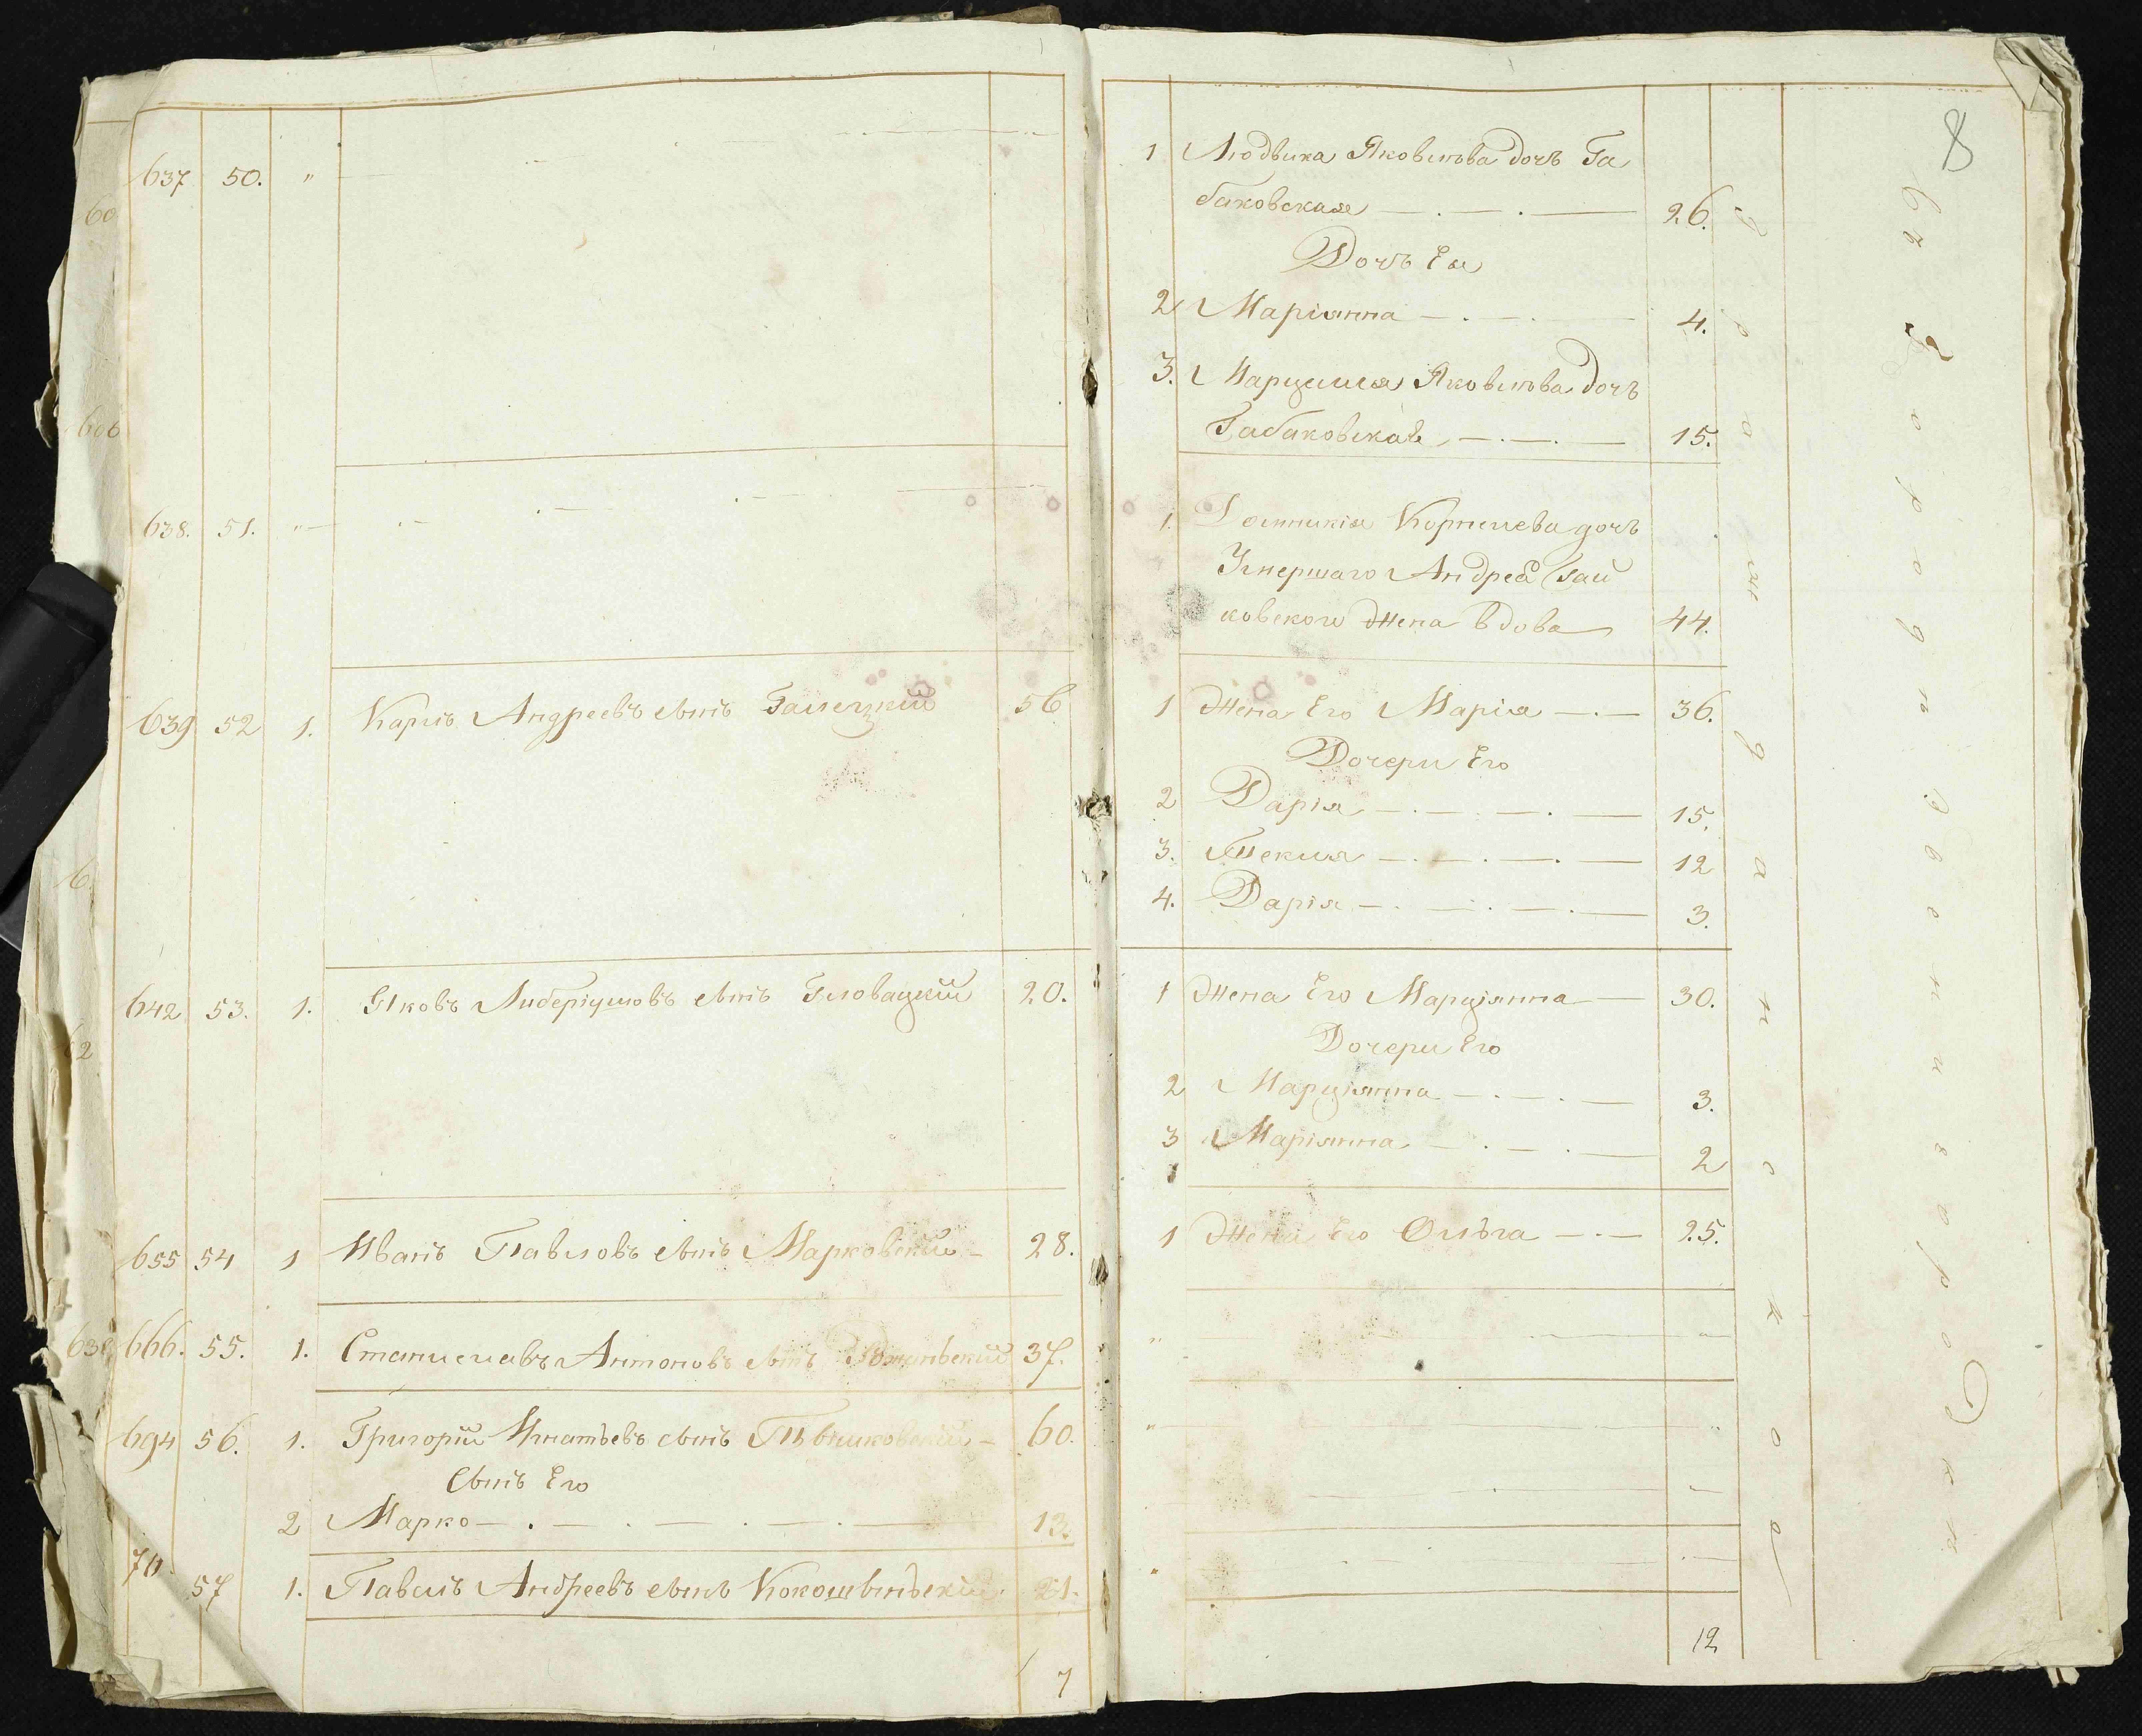 637 50. "
638. 51. "
639 52 1. Карлъ Андреевъ сынъ Галецкий 56
642 53. 1. Яковъ Либеріушовъ сынъ Гловацкій 20.
655 54 1 Иванъ Павловъ сынъ Марковский 28.
666. 55. 1. Станиславъ Антоновъ сынъ 37.
694 56. 1. Григорій Игнатьевъ сынъ 60.
Сынъ Его
2 Марко 13.
57 1. Павелъ Андреевъ сынъ 21.
7
8
1 Людвика Яковлѣва дочь Га
баковская 26.
Дочь Ея
2 Маріянна 4.
3. Марцеллія Яковлѣва дочь
Габаковская 15.
1. Корнилева дочь
Умершаго Андрея Зай
ковского жена вдова 44.
1 Жена Его Марія 36.
Дочери Его
2 Дарія 15.
3. Текля 12
4. Дарія 3.
1 Жена Его Марціянна 30.
Дочери Его
2 Марціянна 3.
3 Маріянна 2
1 Жена Его Ольга 25.
12